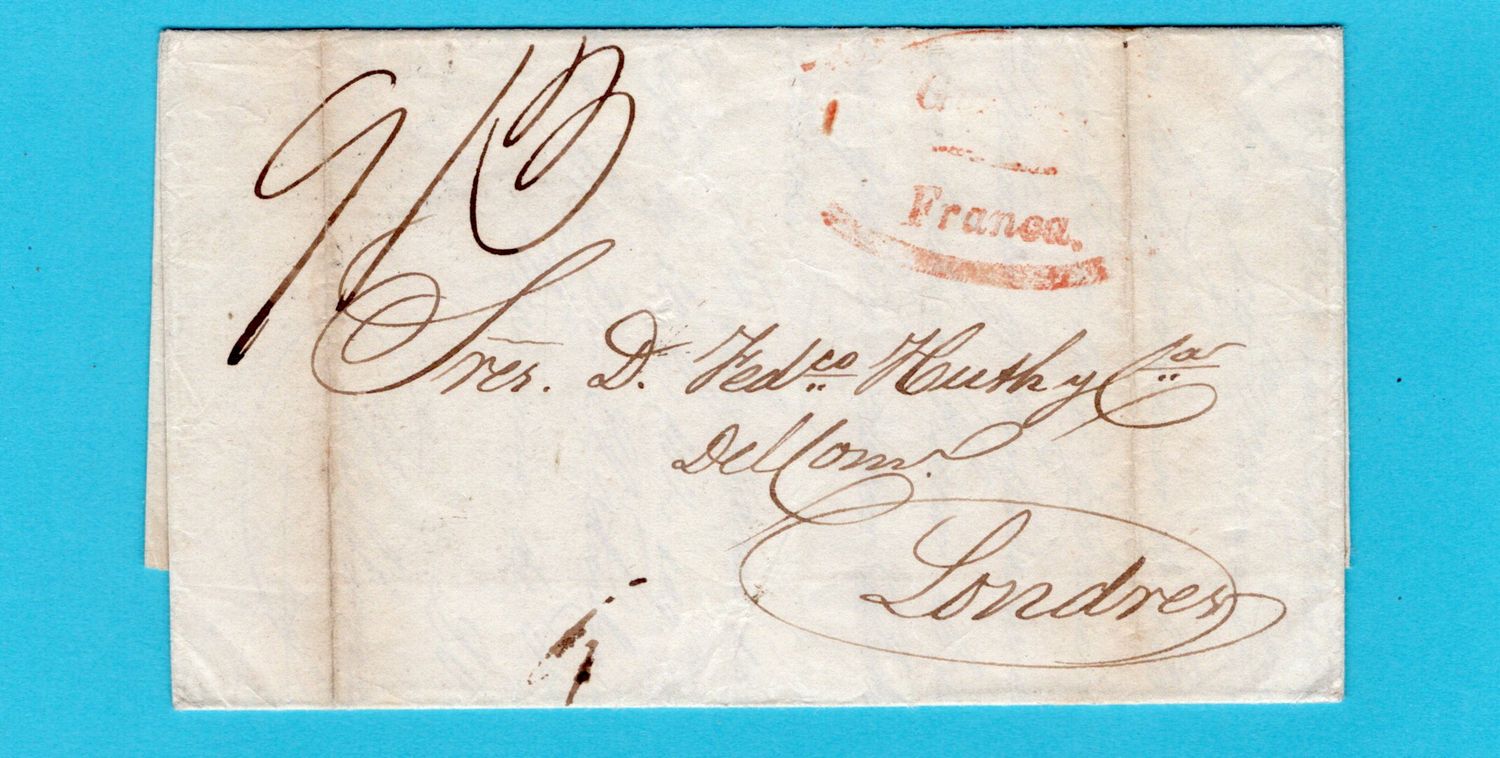 9/3
Franca.
Sres. D. Fedco Huth y Ca
Del Com.
Londres